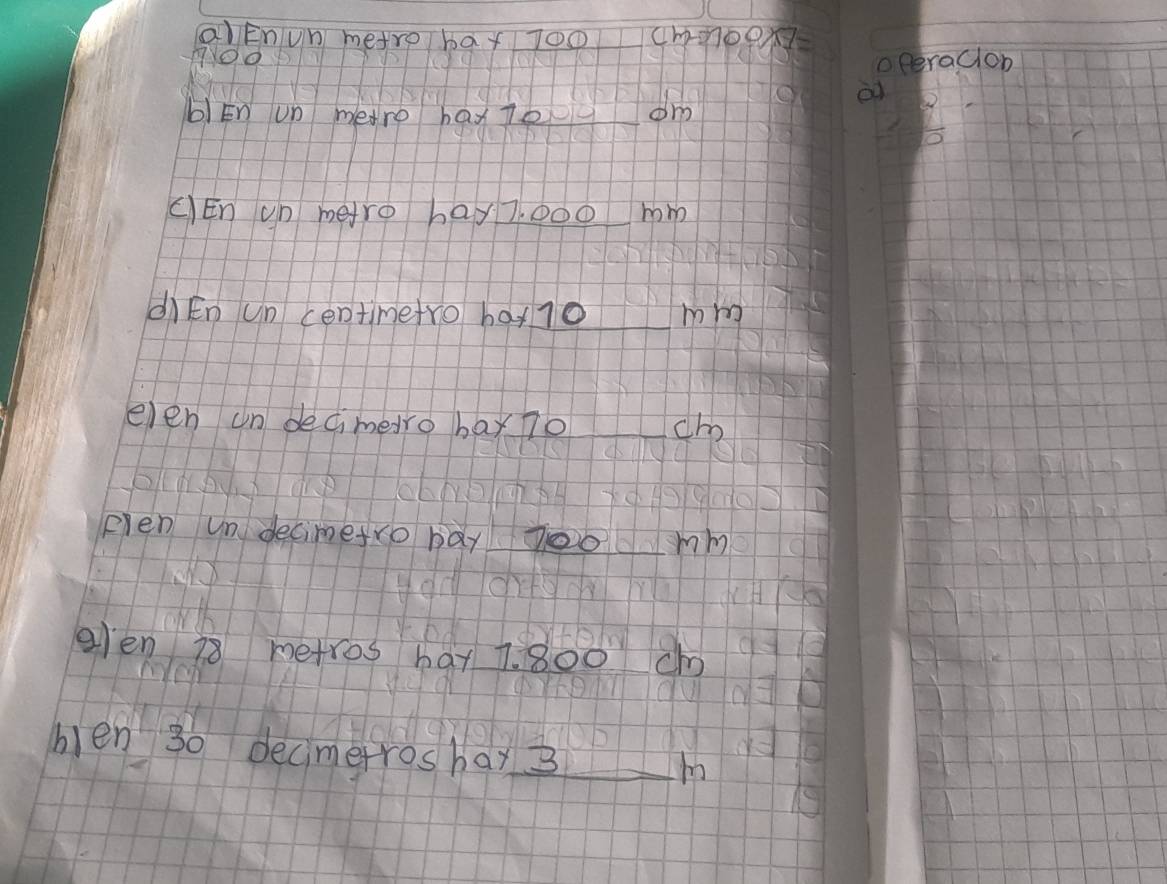 a) En un metro hay 100 cm = 100x1=
100
b) En un metro hay 10 dm
c) En un metro hay 1.000 mm
d) En un centimetro hay 10 mm
e) en un decimetro hay 10 cm
F) en un decimetro hay 100 mm
g) en 18 metros hay 1.800 cm
h) en 30 decimetros hay 3 m
operacion
a)